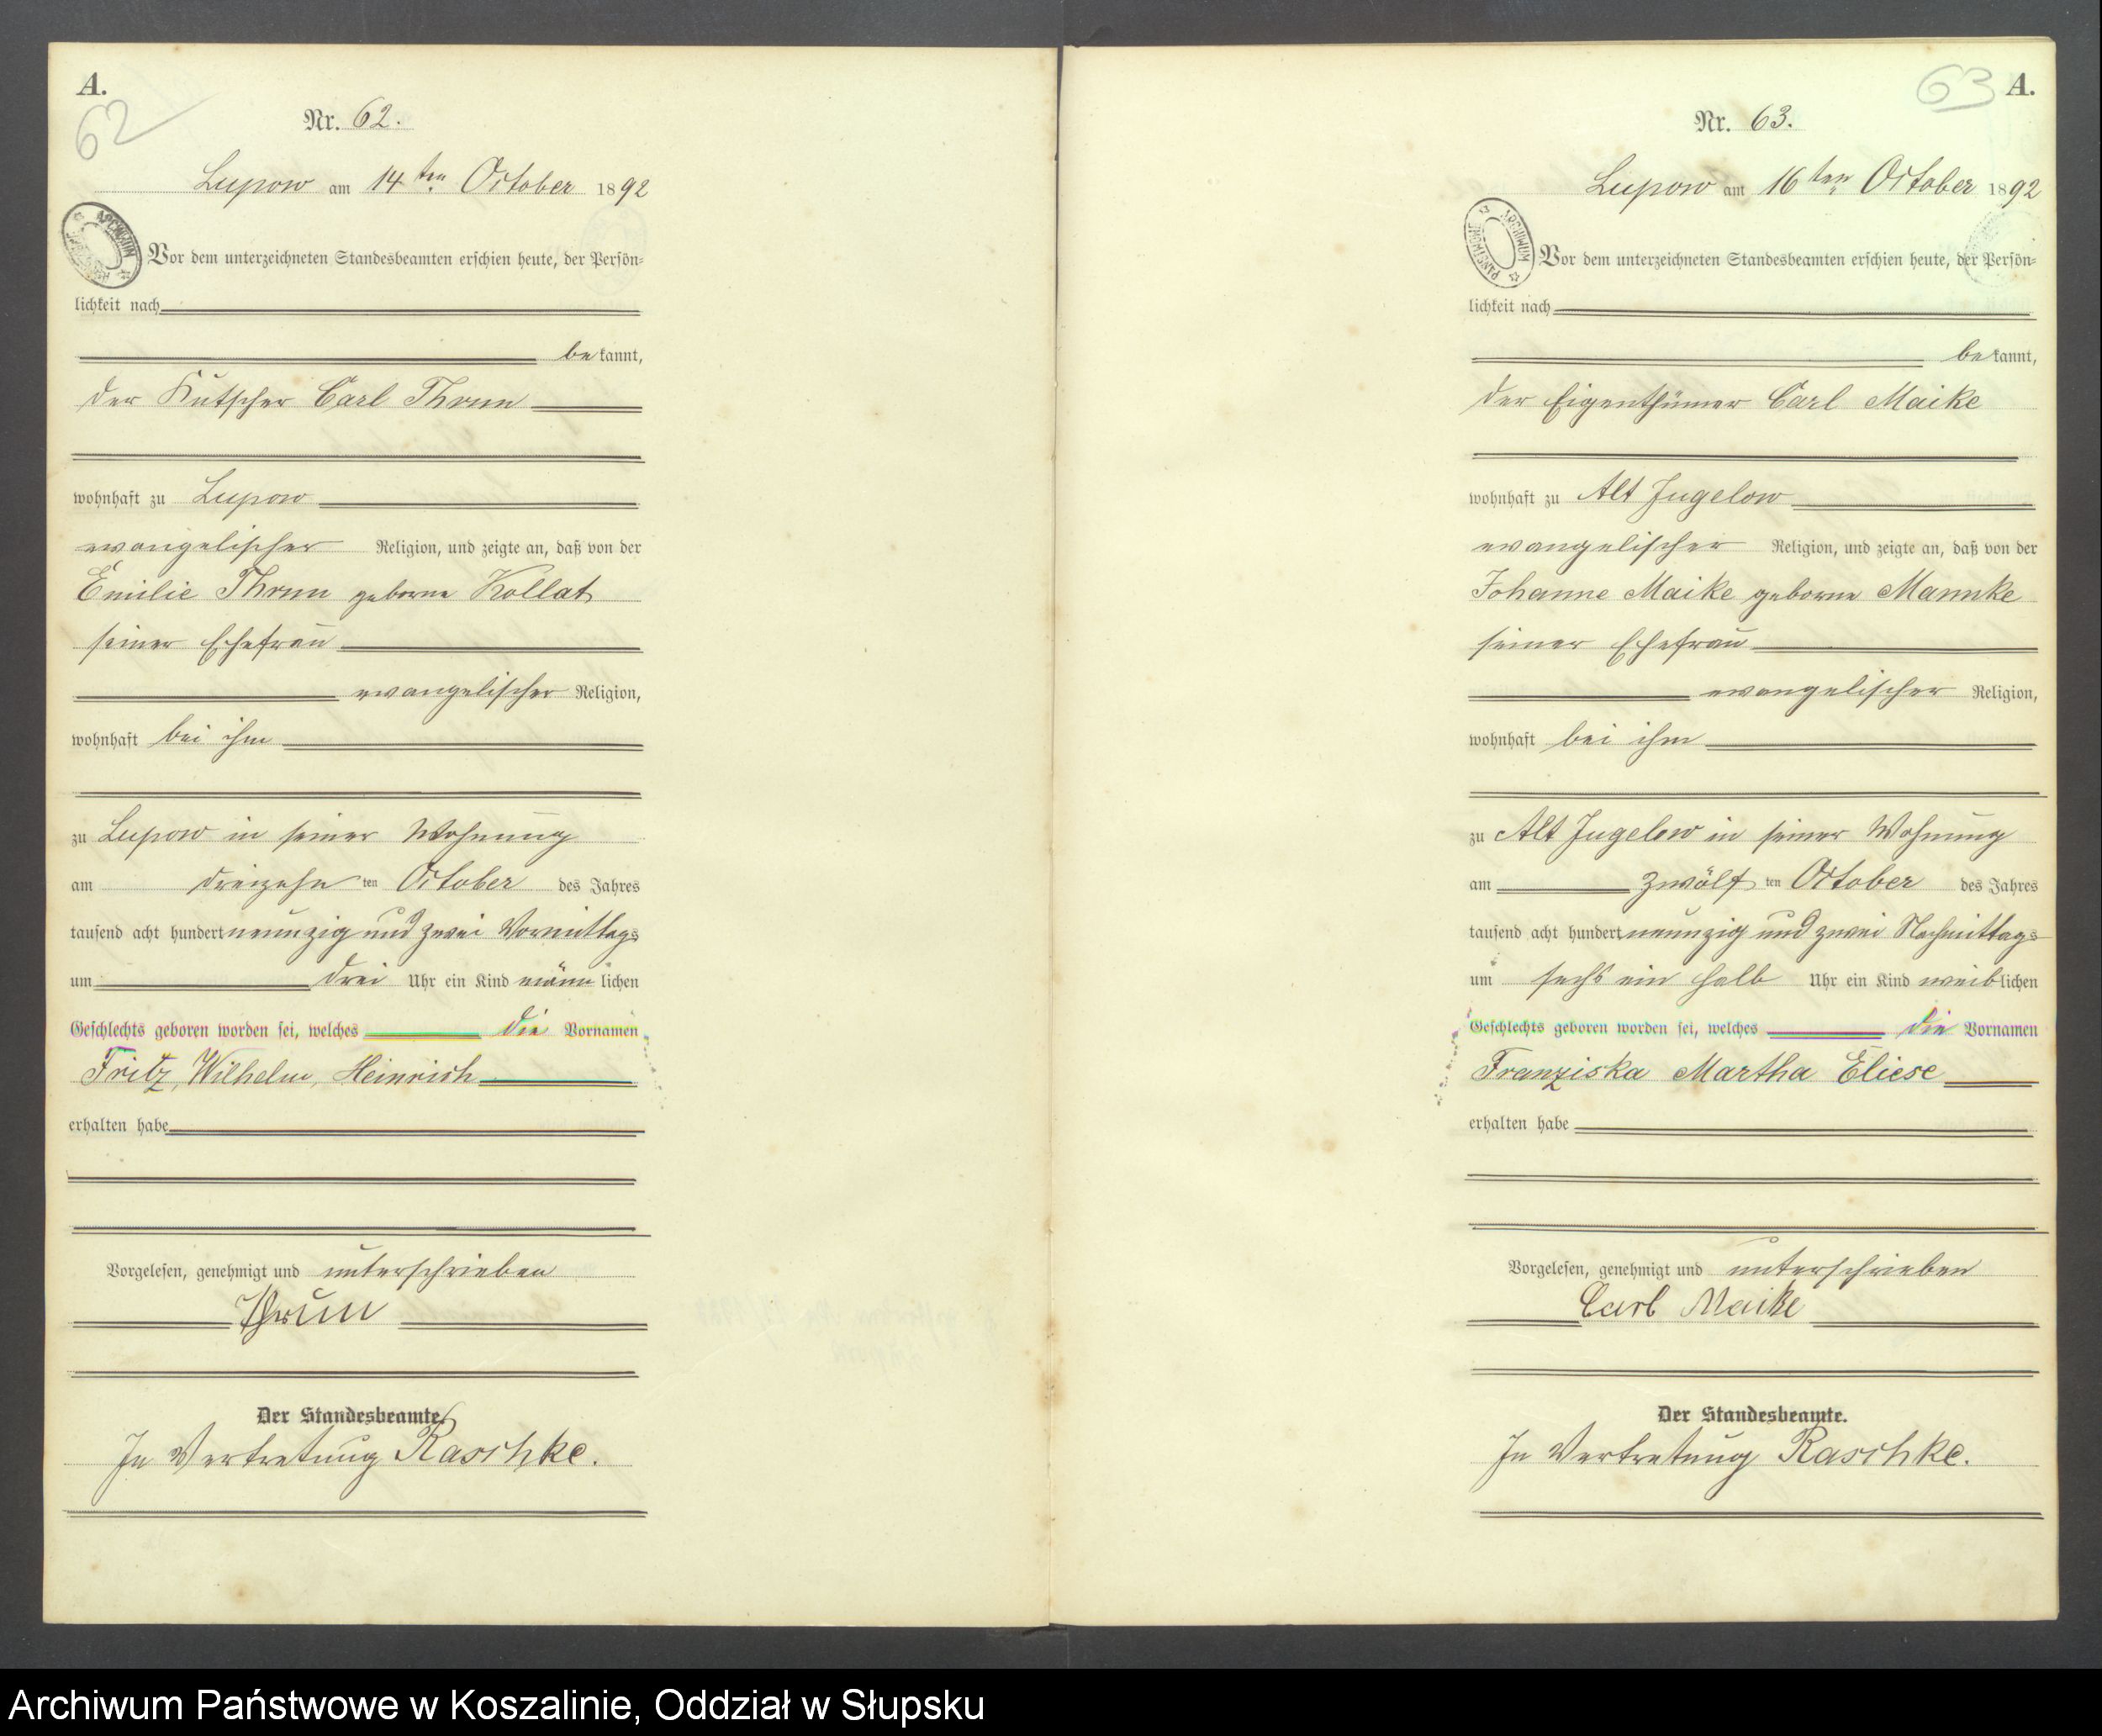 A.
62
Nr. 62.
Lupow am 14ten October 1892
Vor dem unterzeichneten Standesbeamten erschien heute, der Persön-
lichkeit nach
bekannt,
der Kutscher Carl Thrun
wohnhaft zu Lupow
evangelischer Religion, und zeigte an, daß von der
Emilie Thrun geborne Kollat
seiner Ehefrau
evangelischer Religion,
wohnhaft bei ihm
zu Lupow in seiner Wohnung
am dreizehn ten October des Jahres
tausend acht hundert neunzig und zwei Vormittags
um drei Uhr ein Kind männlichen
Geschlechts geboren worden sei, welches die Vornamen
Fritz, Wilhelm, Heinrich
erhalten habe
Vorgelesen, genehmigt und unterschrieben
Thrun
Der Standesbeamte.
In Vertretung Raschke.
63 A.
Nr. 63.
Lupow am 16ten October 1892
ARCHIWUM PAŃSTWOWE
Vor dem unterzeichneten Standesbeamten erschien heute, der Persön-
lichkeit nach
bekannt,
der Eigenthümer Carl Maike
wohnhaft zu Alt Jugelow
evangelischer Religion, und zeigte an, daß von der
Johanne Maike geborne Mannke
seiner Ehefrau
evangelischer Religion,
wohnhaft bei ihm
zu Alt Jugelow in seiner Wohnung
am zwölf ten October des Jahres
tausend acht hundert neunzig und zwei Nachmittags
um sechs ein halb Uhr ein Kind weiblichen
Geschlechts geboren worden sei, welches die Vornamen
Franziska Martha Eliese
erhalten habe
Vorgelesen, genehmigt und unterschrieben
Carl Maike
Der Standesbeamte.
In Vertretung Raschke.
Archiwum Państwowe w Koszalinie, Oddział w Słupsku